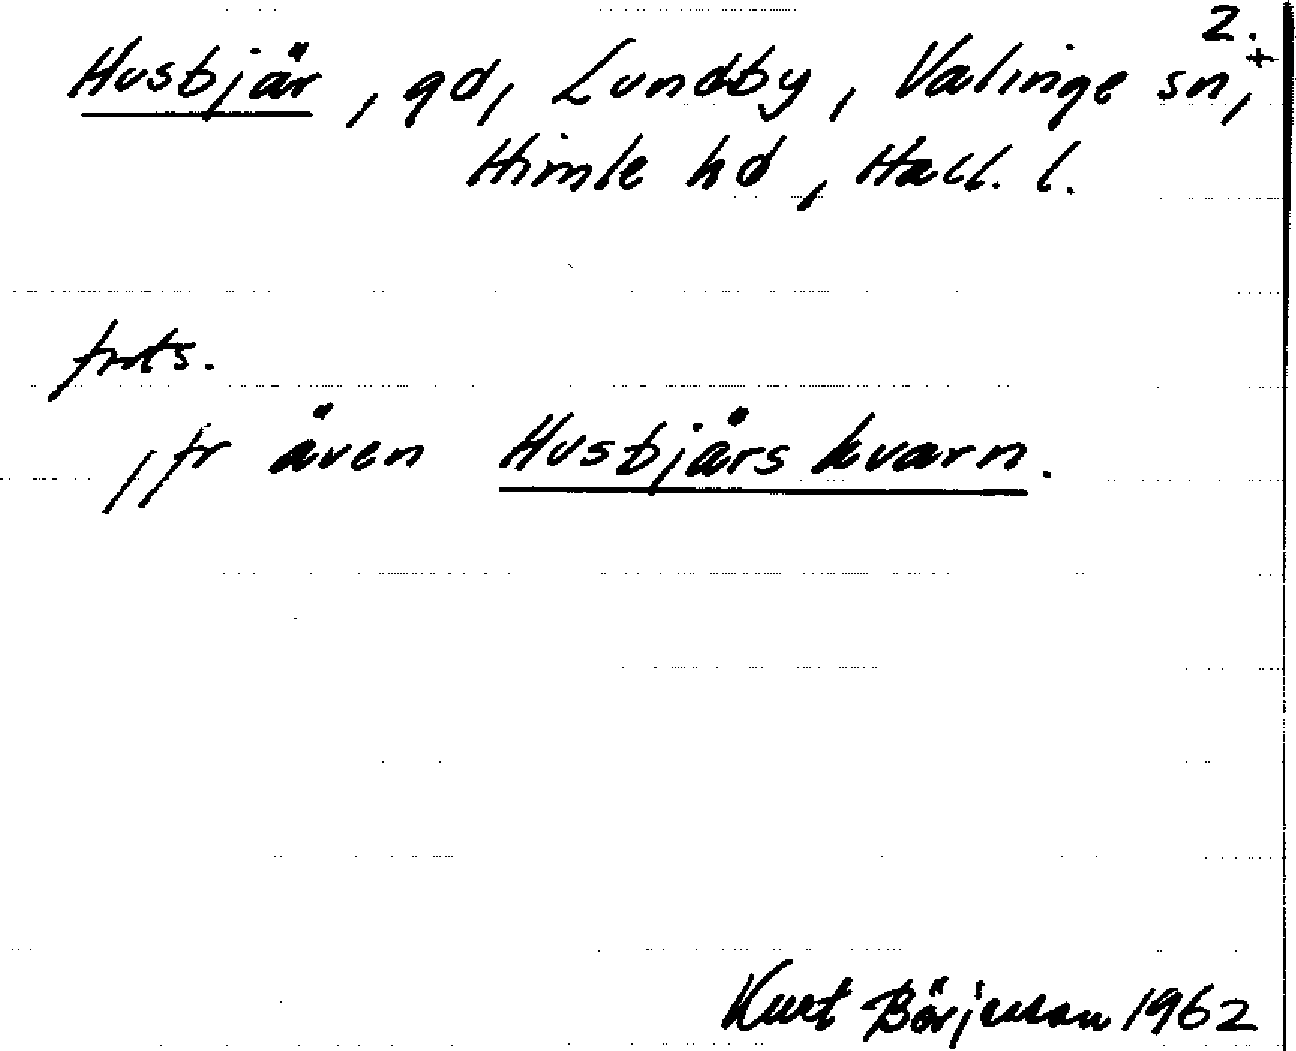 2.
Husbjär, gd, Lundby, Valinge sn, +
Himle hd, Hall. l.
forts.
, jfr även Husbjärs kvarn.
Kurt Börjesson 1962